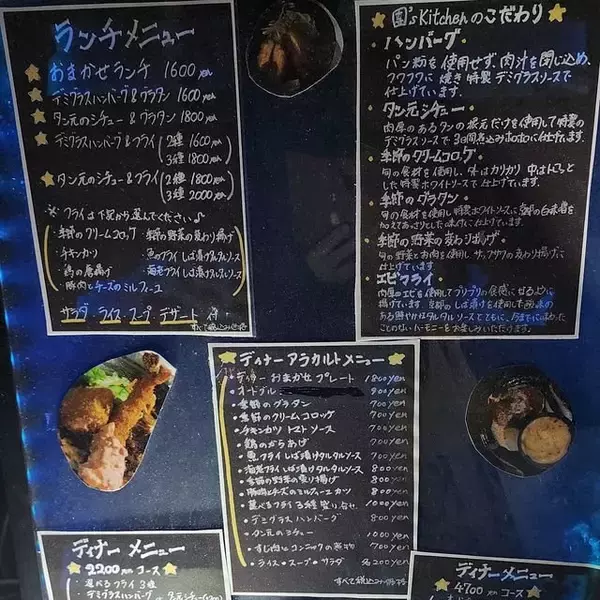 ランチメニュー
おまかせランチ 1600yen
・デミグラスハンバーグ&グラタン 1600yen
・タン元のシチュー&グラタン 1800yen
・デミグラスハンバーグ&フライ (2種 1600yen
3種 1800yen)
・タン元のシチュー&フライ (2種 1800yen
3種 2000yen)
※フライは下記から選んでください♪
・季節のクリームコロッケ ・季節の野菜の変わり揚げ
・チキンカツ ・魚のフライしば漬けタルタルソース
・鶏の唐揚げ ・海老フライしば漬けタルタルソース
・豚肉とチーズのミルフィーユ
サラダ ライス スープ デザート 付
すべて税込み価格
園's Kitchenのこだわり
・ハンバーグ・
パン粉を使用せず、肉汁を閉じ込め、
フワフワに焼き特製デミグラスソースで
仕上げています。
・タン元シチュー・
肉厚のあるタンの根元だけを使用して特製の
デミグラスソースで3日間煮込みホロホロに仕上げています。
・季節のクリームコロッケ・
旬の食材を使用し、外はカリカリ 中はトロっと
した特製ホワイトソースで仕上げています。
・季節のグラタン・
旬の食材を使用し特製ホワイトソースに京都の白味噌を
加えてあっさりとした味付けに仕上げています。
・季節の野菜の変わり揚げ・
旬の野菜とお肉を使用し、サックサクの変わり揚げに
仕上げています
・エビフライ・
肉厚のエビを使用してプリプリの食感になるように
揚げています。京都のしば漬けを使用した風味の
ある鮮やかなタルタルソースとともに、今までに味わった
ことのないハーモニーをお楽しみいただけます。
ディナーアラカルトメニュー
・ディナーおまかせプレート 1800yen
・オードブル 900yen
・季節のグラタン 700yen
・季節のクリームコロッケ 700yen
・チキンカツ トマトソース 700yen
・鶏のからあげ 700yen
・魚フライしば漬けタルタルソース 700yen
・海老フライしば漬けタルタルソース 800yen
・季節の野菜の変り揚げ 800yen
・豚肉とチーズのミルフィーユカツ 800yen
・選べるフライ3種盛り合せ 1000yen
・デミグラスハンバーグ 800yen
・タン元のシチュー 1000yen
・すじ肉とコンニャクの煮物 700yen
・ライス・スープ・サラダ 各200yen
すべて税込み価格
ディナーメニュー
2200yenコース
・選べるフライ3種
・デミグラスハンバーグ
ディナーメニュー
4700yenコース